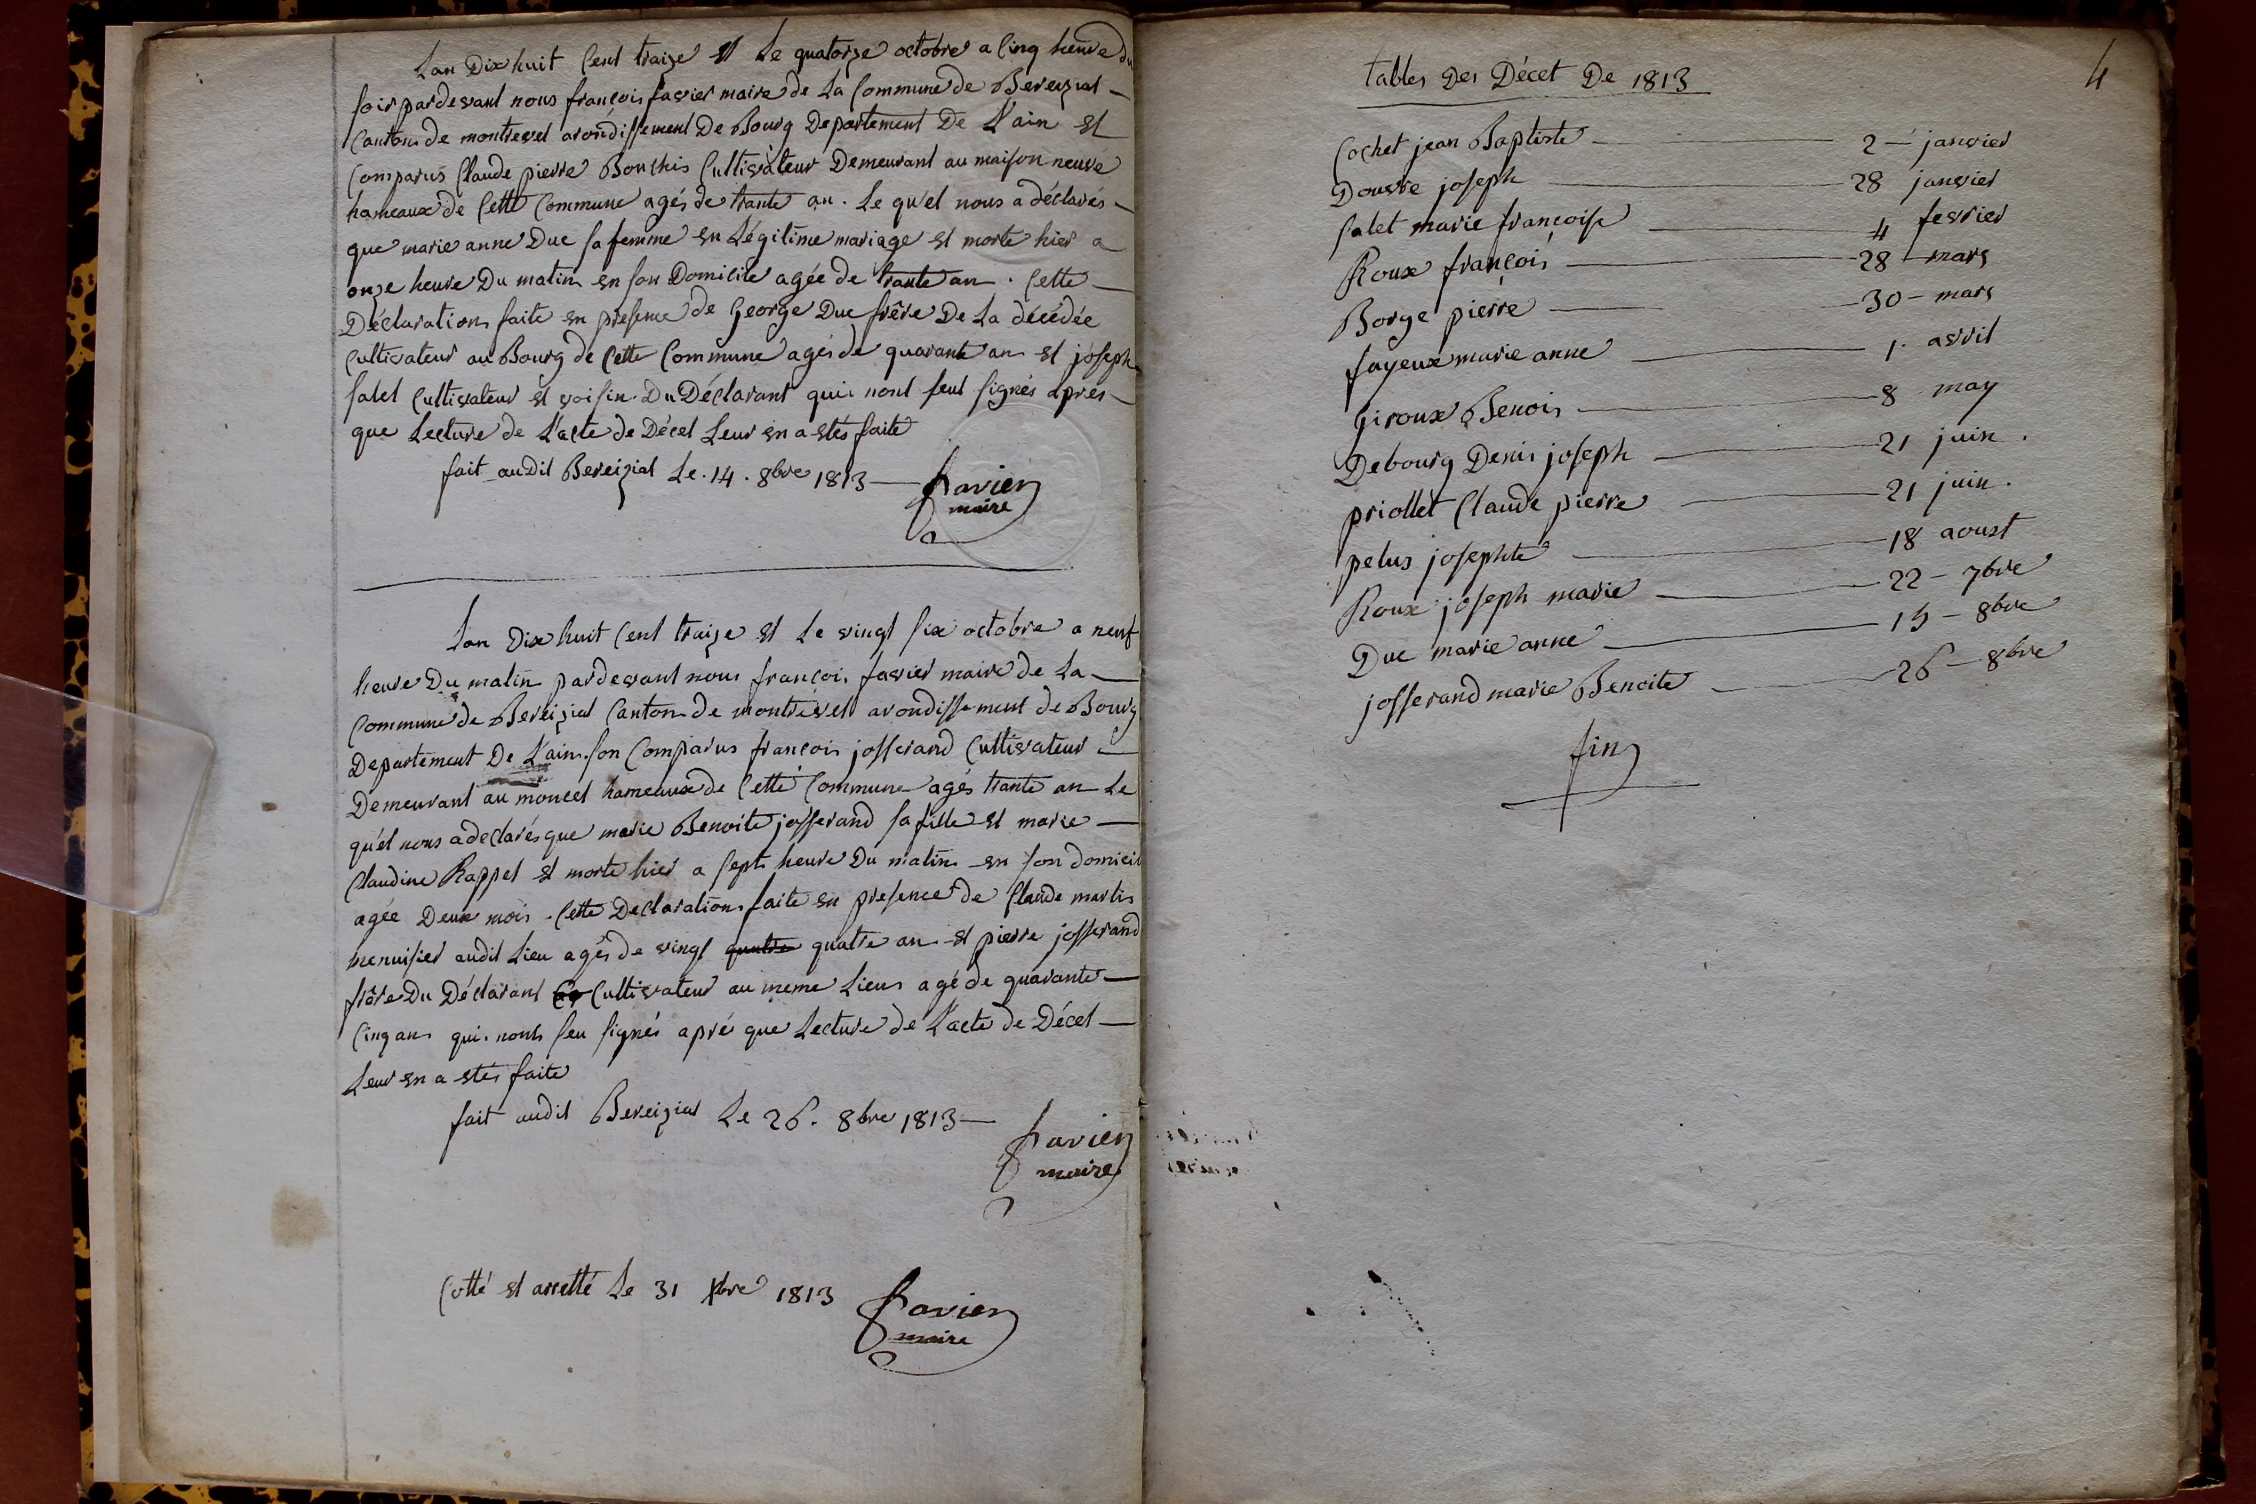 Lan Dix huit Cent traize et Le quatorze octobre a Cinq heure du
soir pardevant nous françois favier maire de La Commune de Bereiziat
Canton de montrevel arondissement De Bourg Departement De L'ain est
Comparus Claude pierre Bouchis Cultivateur Demeurant au maison neuve
hameaux de Cette Commune agés de trante an. Le qu'el nous a déclarés
que marie anne Duc sa femme en Légitime mariage et morte hier a
onze heure Du matin en son Domicile agée de trante an. Cette
Déclaration faite en presence de George Duc frêre De La décédée
Cultivateur au Bourg de Cette Commune agés de quarante an et joseph
salet Cultivateur et voisin Du Déclarant qui nont seut signés apres
que Lecture de L'acte de Décet Leur en a etés faite
fait audit Bereiziat Le. 14. 8bre 1813
favier
maire
Lan Dix huit Cent traize et Le vingt six octobre a neuf
heure Du matin pardevant nous françois favier maire de La
Commune de Bereiziat Canton de montrevel arondissement de Bourg
Departement De L'ain son Comparus françois josserand Cultivateur
Demeurant au moncet hameaux de Cette Commune agés trante an Le
qu'el nous a declarés que marie Benoite josserand sa fille et marie
Claudine Rappet et morte hier a sept heure Du matin en son domicil
agée Deux mois. Cette Declaration faite en presence de Claude martin
menuisier audit Lieu agés de vingt quatre quatre an et pierre josserand
frêre Du Déclarant Cultivateur au meme Lieu agé de quarante
Cinq an qui nont seu signés aprés que Lecture de L'acte de Décet
Leur en a etés faite
fait audit Bereiziat Le 26. 8bre 1813
favier
maire
Cotté et arretté Le 31 Xbre 1813
favier
maire
4
tables Des Décet De 1813
Cochet jean Baptiste 2 janvier
Douvre joseph 28 janvier
salet marie françoise 4 fevrier
Roux françois 28 mars
Borge pierre 30 mars
fayeux marie anne 1. avril
Giroux Benois 8 may
Debourg Denis joseph 21 juin.
priollet Claude pierre 21 juin.
pelus josephte 18 aoust
Roux joseph marie 22 7bre
Duc marie anne 13 8bre
josserand marie Benoite 26 8bre
fin